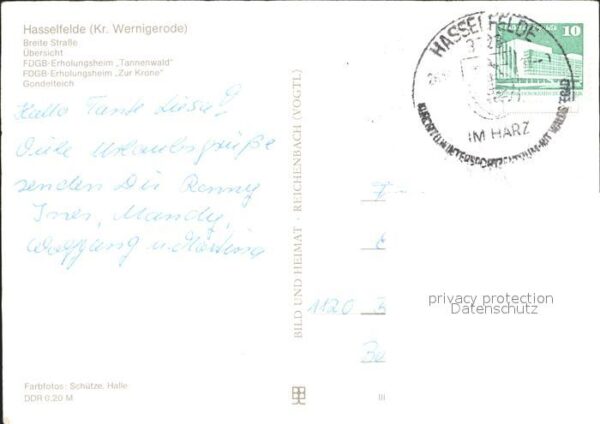 Hasselfelde (Kr. Wernigerode)
Breite Straße
Übersicht
FDGB-Erholungsheim „Tannenwald“
FDGB-Erholungsheim „Zur Krone“
Gondelteich
Hallo Tante Luise!
Viele Urlaubsgrüße
senden Dir Ronny
Ines, Mandy,
Wolfgang u. Martina
Farbfotos: Schütze, Halle
DDR 0,20 M
BILD UND HEIMAT · REICHENBACH (VOGTL)
III
HASSELFELDE
IM HARZ
10
1120
privacy protection
Datenschutz